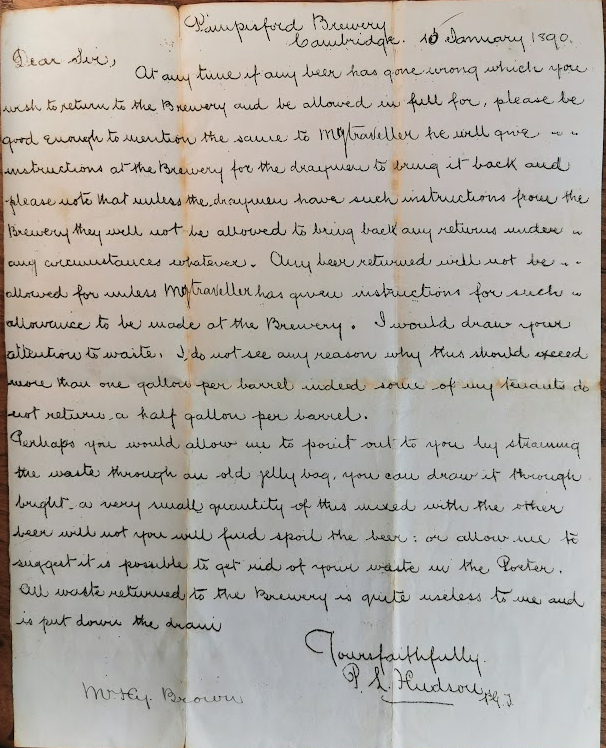 Pampisford Brewery
Cambridge. 15 January 1890.
Dear Sir,
At any time if any beer has gone wrong which you
wish to return to the Brewery and be allowed in full for, please be
good enough to mention the same to My traveller he will give " "
instructions at the Brewery for the draymen to bring it back and
please note that unless the draymen have such instructions from the
Brewery they will not be allowed to bring back any returns under "
any circumstances whatever. Any beer returned will not be " "
allowed for unless My traveller has given instructions for such "
allowance to be made at the Brewery. I would draw your
attention to waste. I do not see any reason why this should exceed
more than one gallon per barrel indeed some of my tenants do
not return a half gallon per barrel.
Perhaps you would allow me to point out to you by straining
the waste through an old jelly bag, you can draw it through
bright a very small quantity of this mixed with the other
beer will not you will find spoil the beer: or allow me to
suggest it is possible to get rid of your waste in the Porter.
All waste returned to the Brewery is quite useless to me and
is put down the drain
Yours faithfully
P. L. Hudson
Mr Hy. Brown